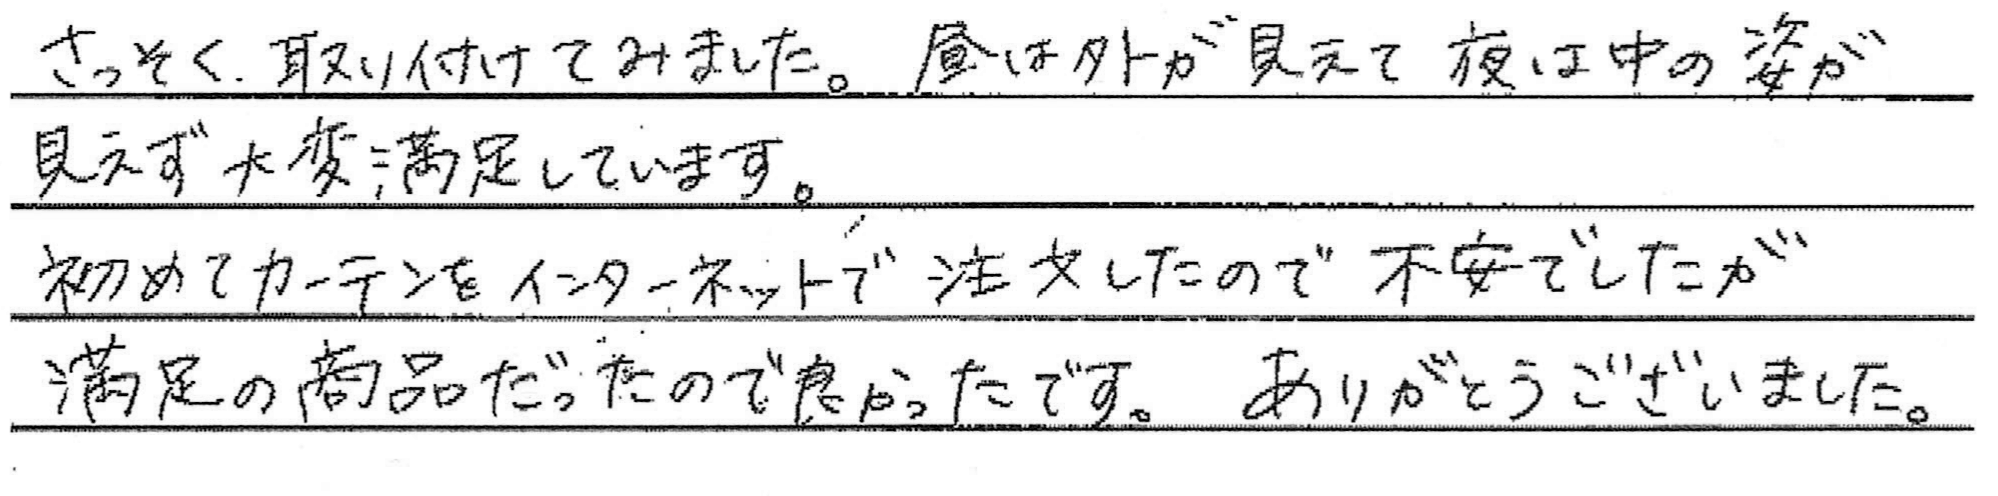 さっそく、取り付けてみました。昼は外が見えて夜は中の姿が
見えず大変満足しています。
初めてカーテンをインターネットで注文したので不安でしたが
満足の商品だったので良かったです。ありがとうございました。